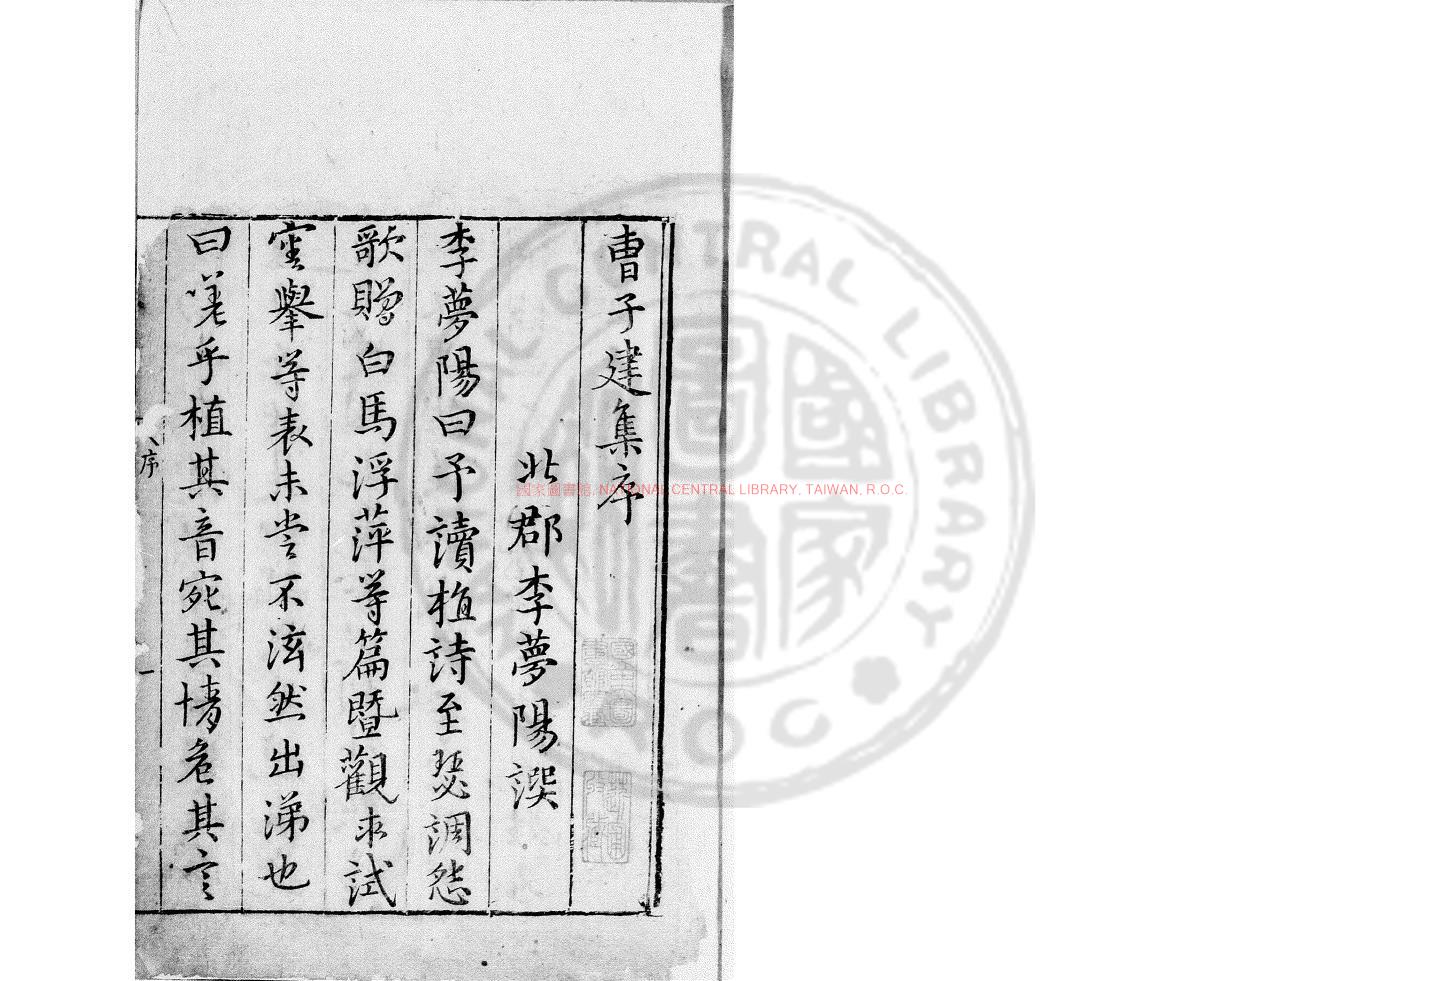 曹子建集序
北郡李夢陽譔
李夢陽曰予讀植詩至瑟調怨
歌贈白馬浮萍等篇暨觀求試
審舉等表未嘗不泫然出涕也
曰嗟乎植其音宛其情危其言
序
一
國家圖書館, NATIONAL CENTRAL LIBRARY, TAIWAN, R.O.C.